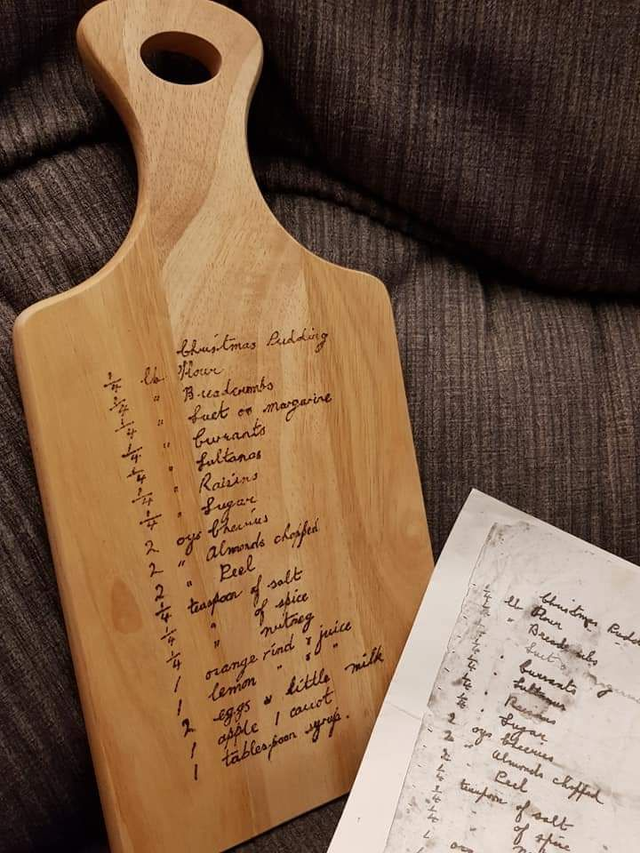 Christmas Pudding
1/4 lb Flour
1/4 " Breadcrumbs
1/4 " Suet or margarine
1/4 " Currants
1/4 " Sultanas
1/4 " Raisins
1/4 " Sugar
2 ozs Cherries
2 " Almonds chopped
2 " Peel
1/4 teaspoon of salt
1/4 " of spice
1/4 " nutmeg
1 orange rind & juice
1 lemon " & "
2 eggs & little milk
1 apple 1 carrot
1 tablespoon syrup.
Christmas Pudd
1/4 lb Flour
1/4 "
1/4 " Suet
1/4 " Currants
1/4 " Sultanas
1/4 " Raisins
1/4 " Sugar
2 ozs Cherries
2 " Almonds chopped
2 " Peel
1/4 teaspoon of salt
1/4 " of spice